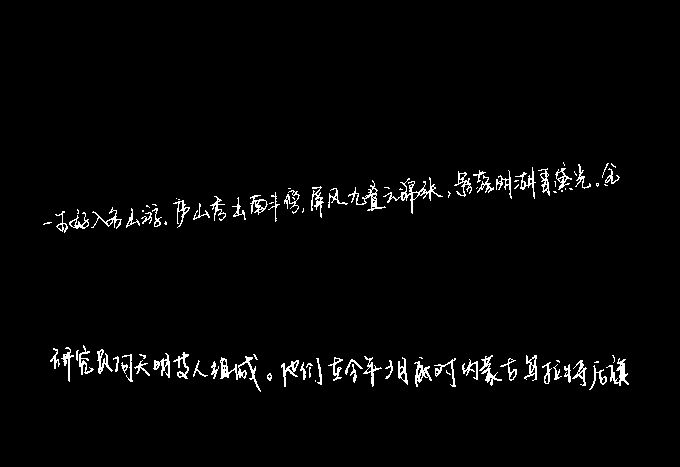 一生好入名山游.庐山秀出南斗傍,屏风九叠云锦张,影落明湖青黛光。金
研究员何天明等人组成。他们在今年3月底对内蒙古乌拉特后旗